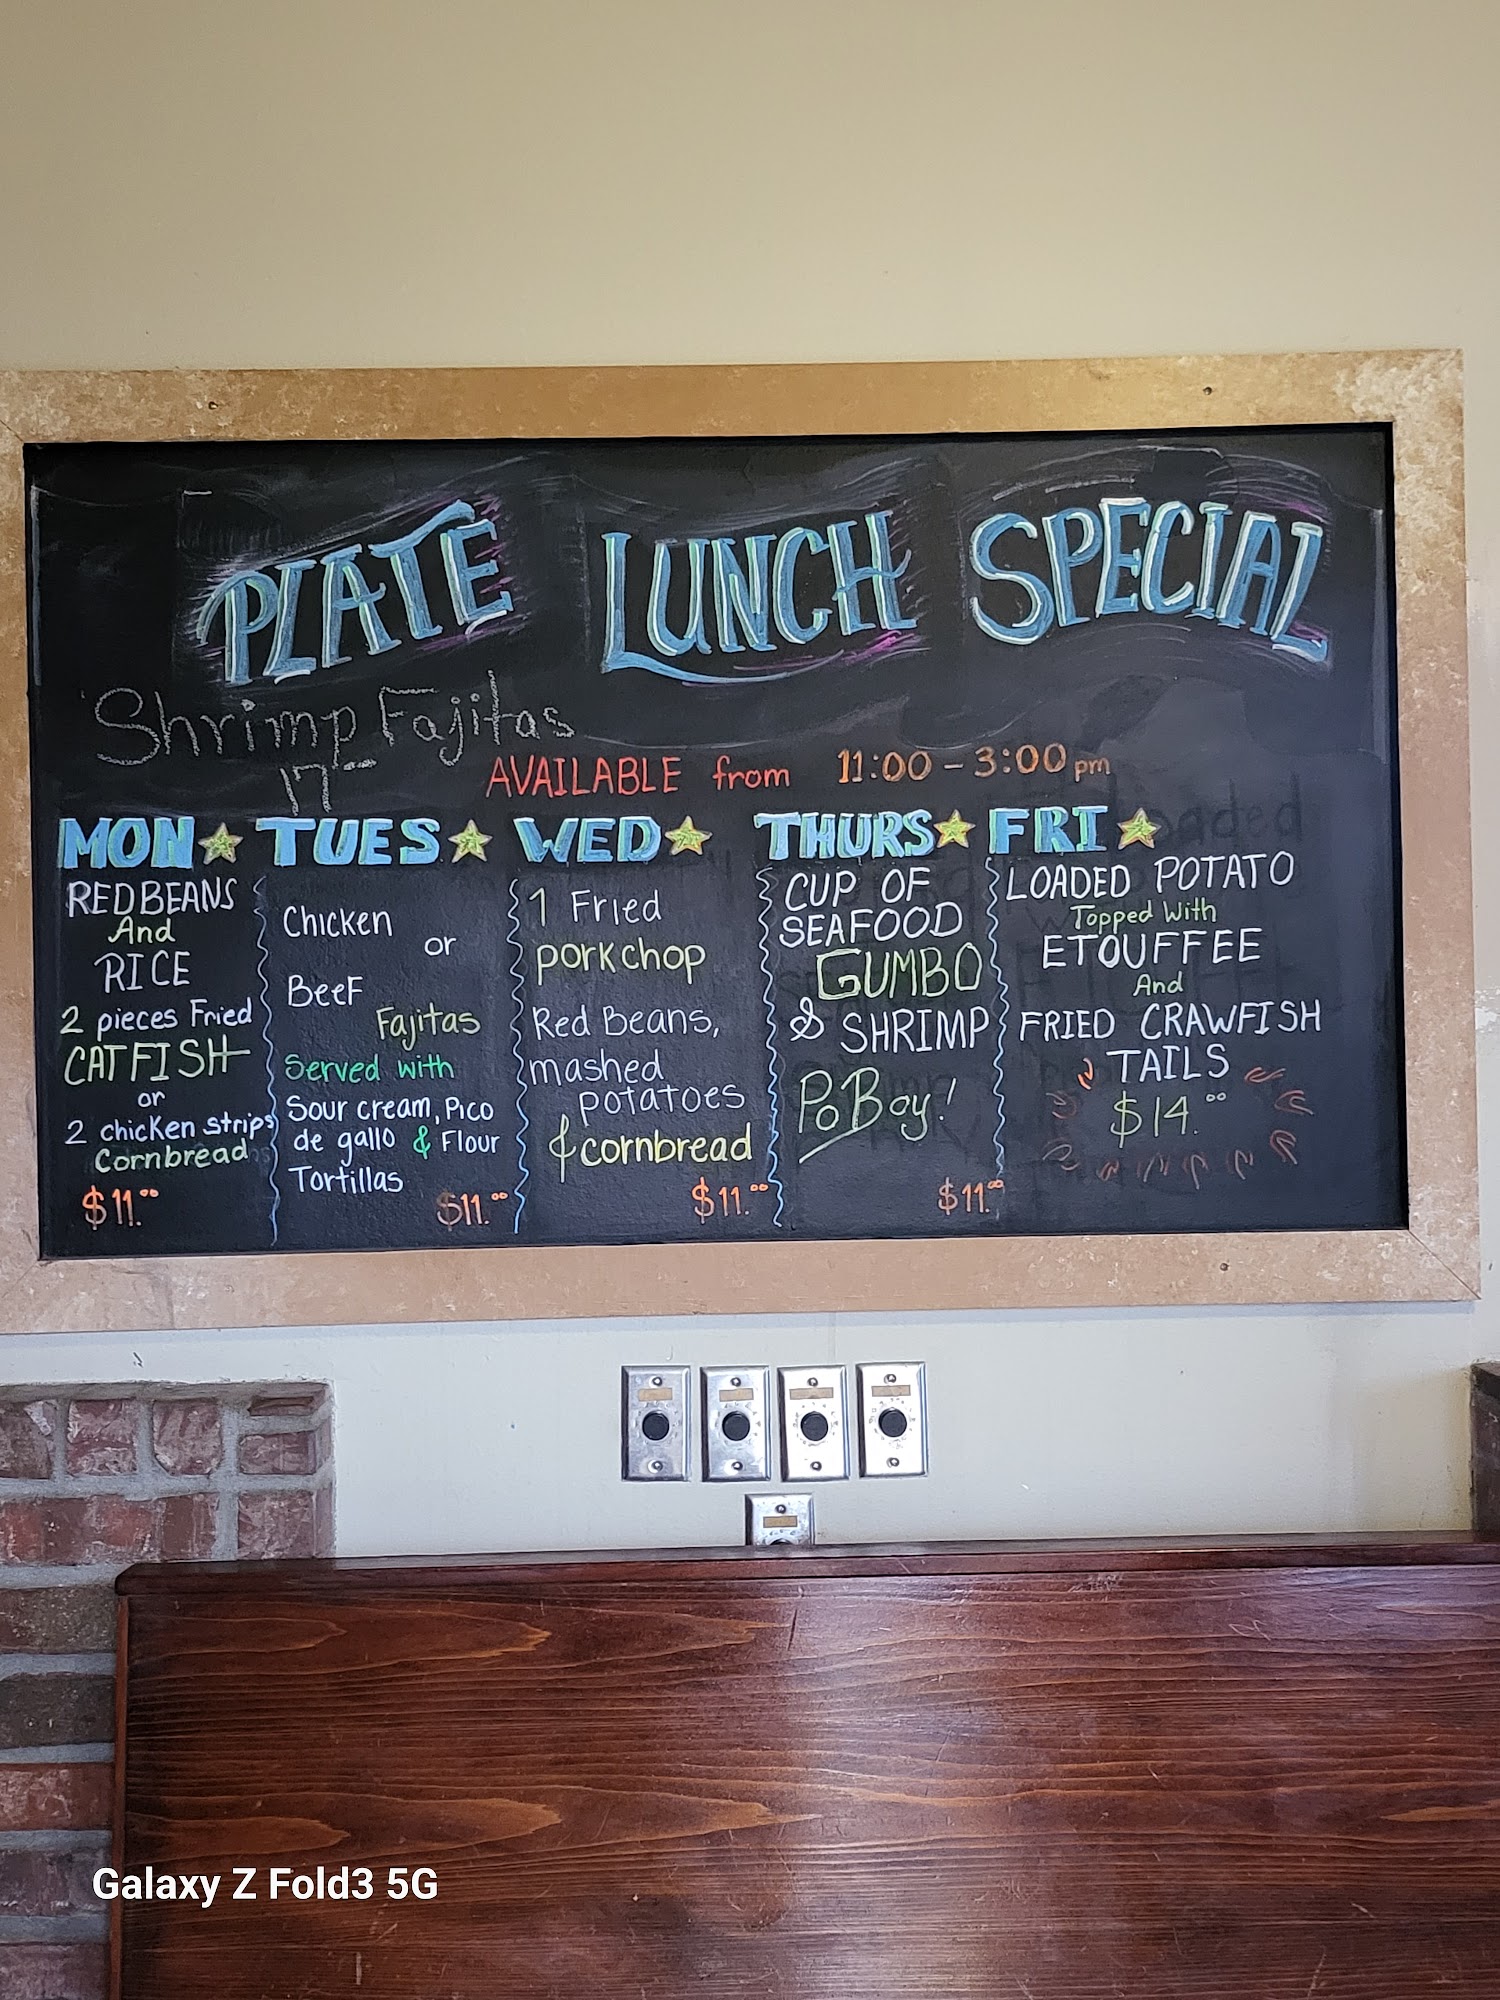 PLATE LUNCH SPECIAL
Shrimp Fajitas
17
AVAILABLE from 11:00 - 3:00 pm
MON
REDBEANS
And
RICE
2 pieces Fried
CATFISH
or
2 chicken strips
Cornbread
$11.00
TUES
Chicken
or
Beef
Fajitas
Served with
Sour cream, Pico
de gallo & Flour
Tortillas
$11.00
WED
1 Fried
porkchop
Red Beans,
mashed
potatoes
& cornbread
$11.00
THURS
CUP OF
SEAFOOD
GUMBO
& SHRIMP
PoBoy!
$11.00
FRI
LOADED POTATO
Topped With
ETOUFFEE
And
FRIED CRAWFISH
TAILS
$14.00
Galaxy Z Fold3 5G